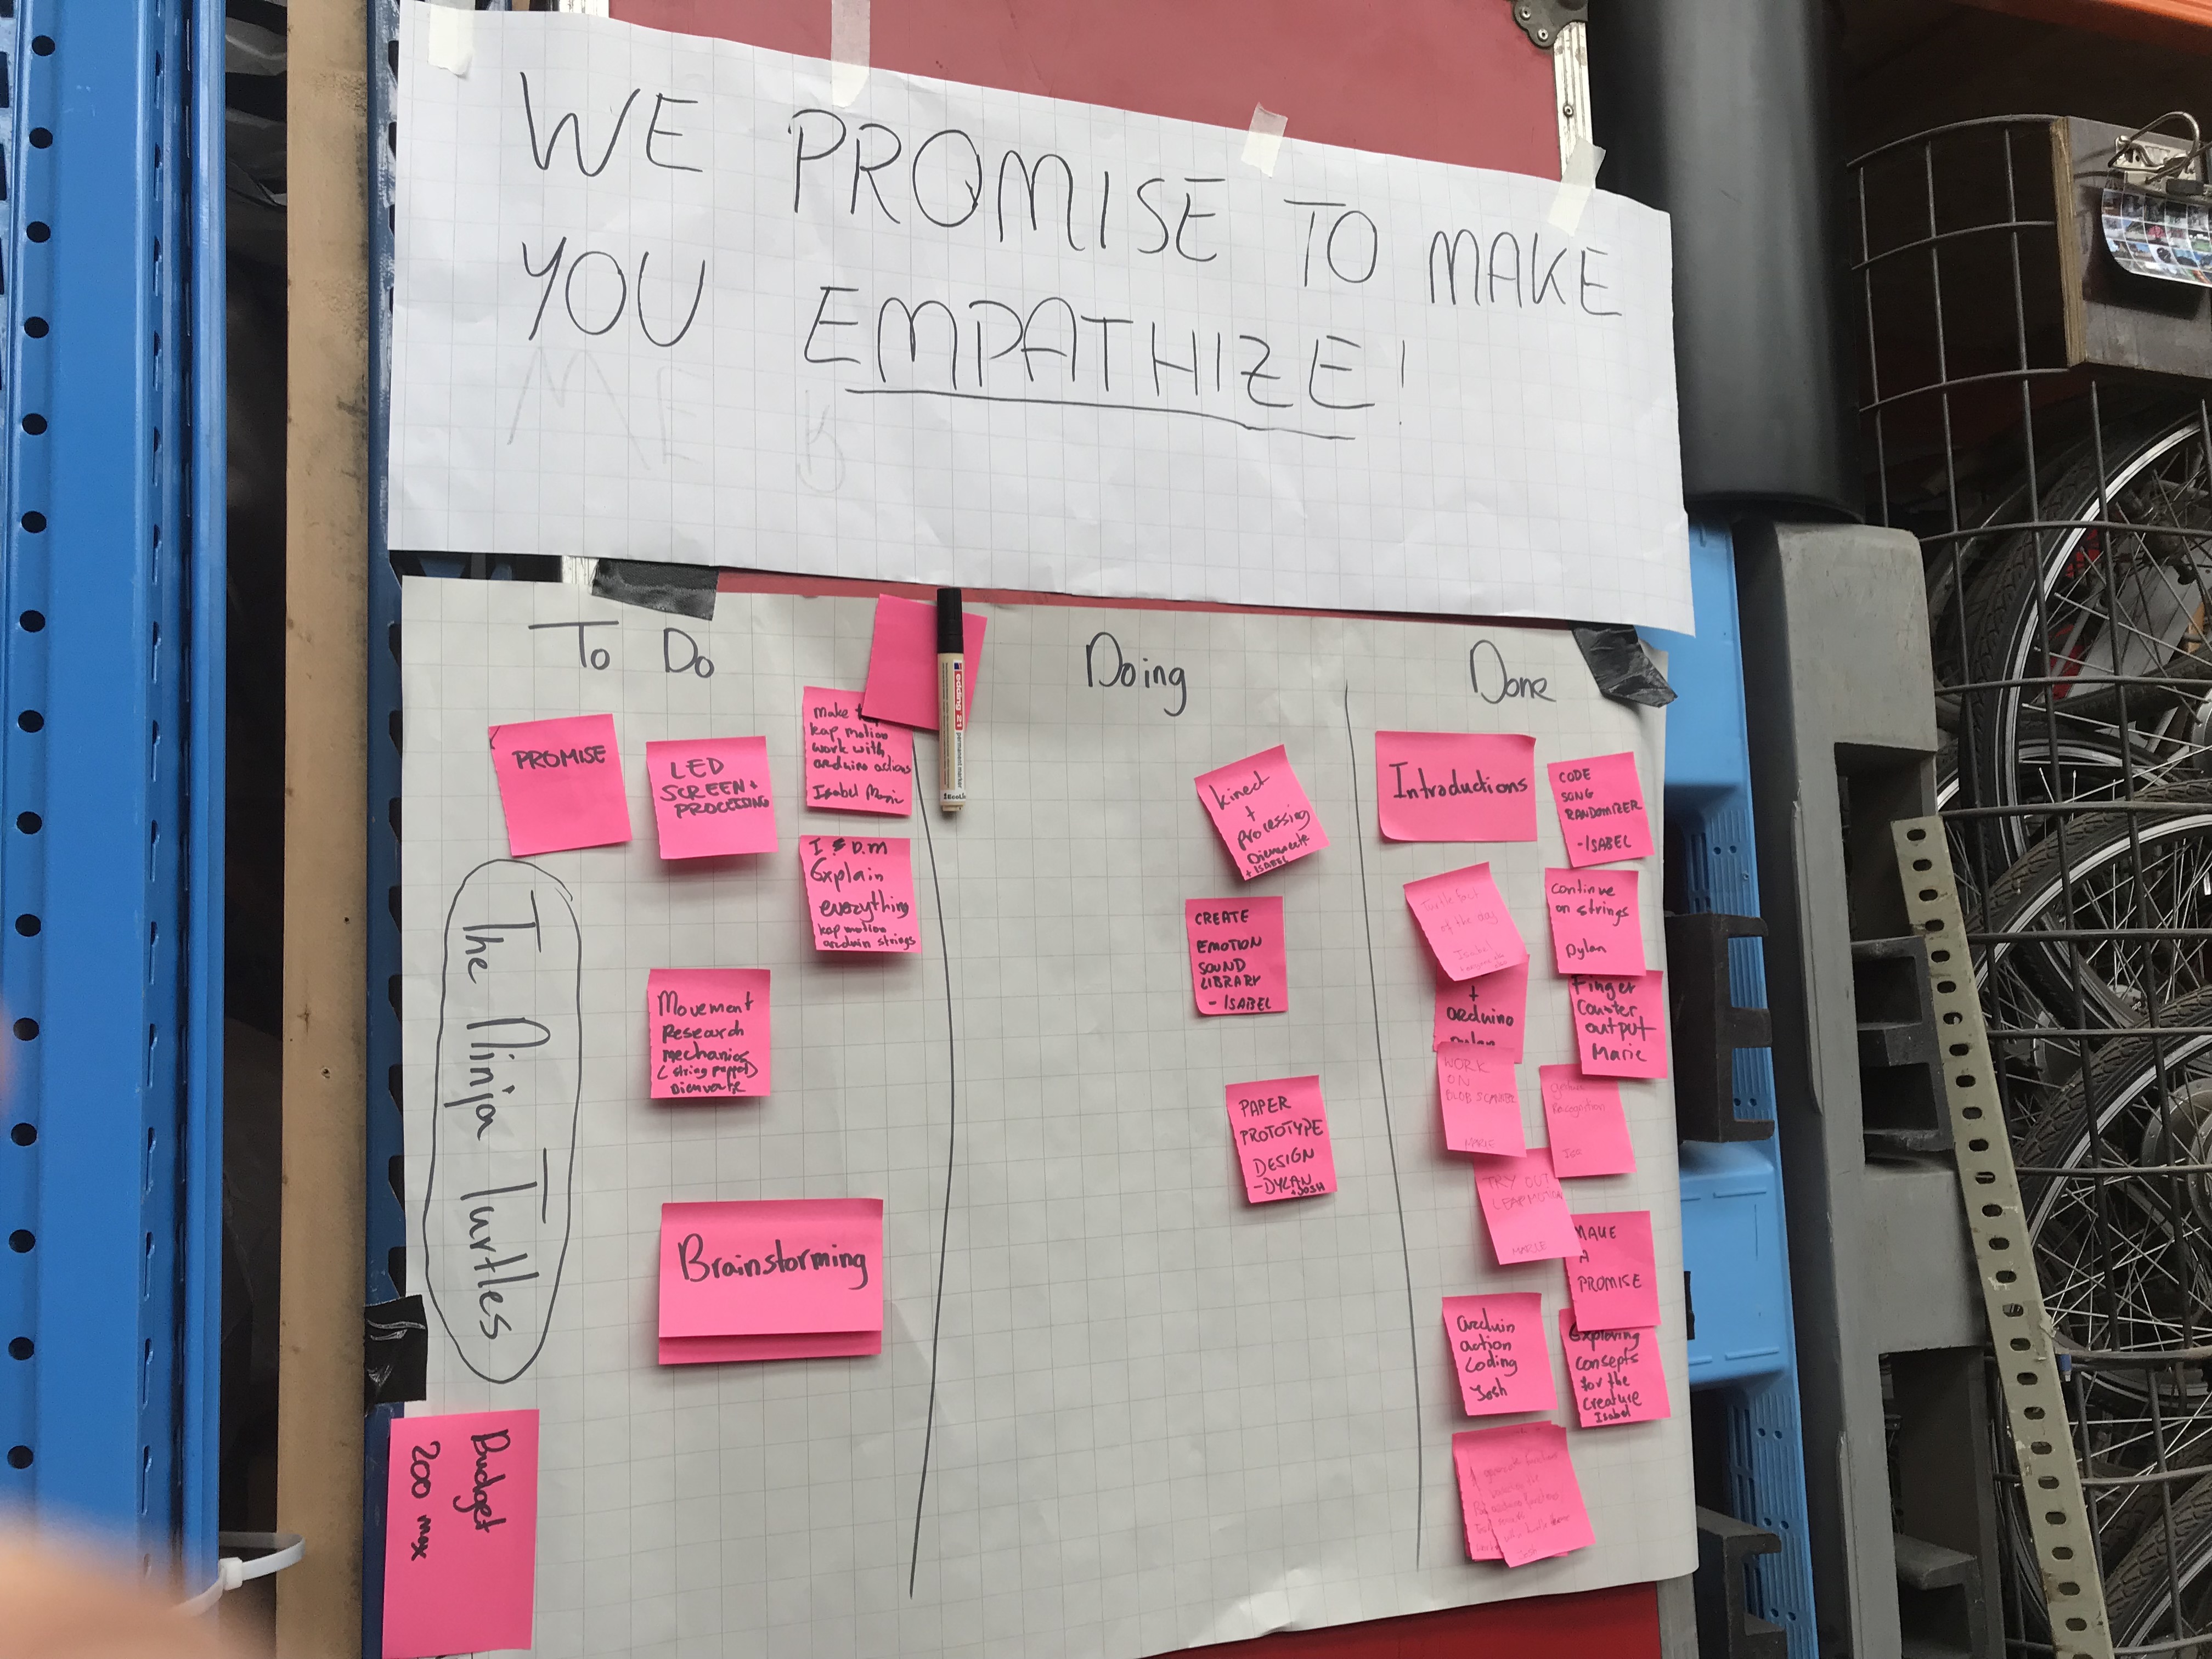 WE PROMISE TO MAKE
YOU EMPATHIZE!
WE
To Do
Doing
Done
PROMISE
LED
SCREEN +
PROCESSING
Make
leap motion
work with
arduino actions
Isabel Marie
edding 21
permanent marker
I & D.M
Explain
everything
leap motion
arduin strings
Movement
Research
Mechanics
(string puppet)
Brainstorming
The Ninja Turtles
Budget
200 max
kinect
+
processing
+ ISABEL
CREATE
EMOTION
SOUND
LIBRARY
- ISABEL
PAPER
PROTOTYPE
DESIGN
- DYLAN
+ JOSH
Introductions
CODE
SONG
RANDOMIZER
- ISABEL
Turtle fact
of the day
Isabel
continue
on strings
Dylan
+
arduino
Dylan
Finger
Counter
output
Marie
WORK
ON
BLOB SCANNER
MARIE
Recognition
TRY OUT
LEAPMOTION
MARIE
MAKE
A
PROMISE
arduin
action
coding
Josh
Exploring
consepts
for the
creature
Isabel